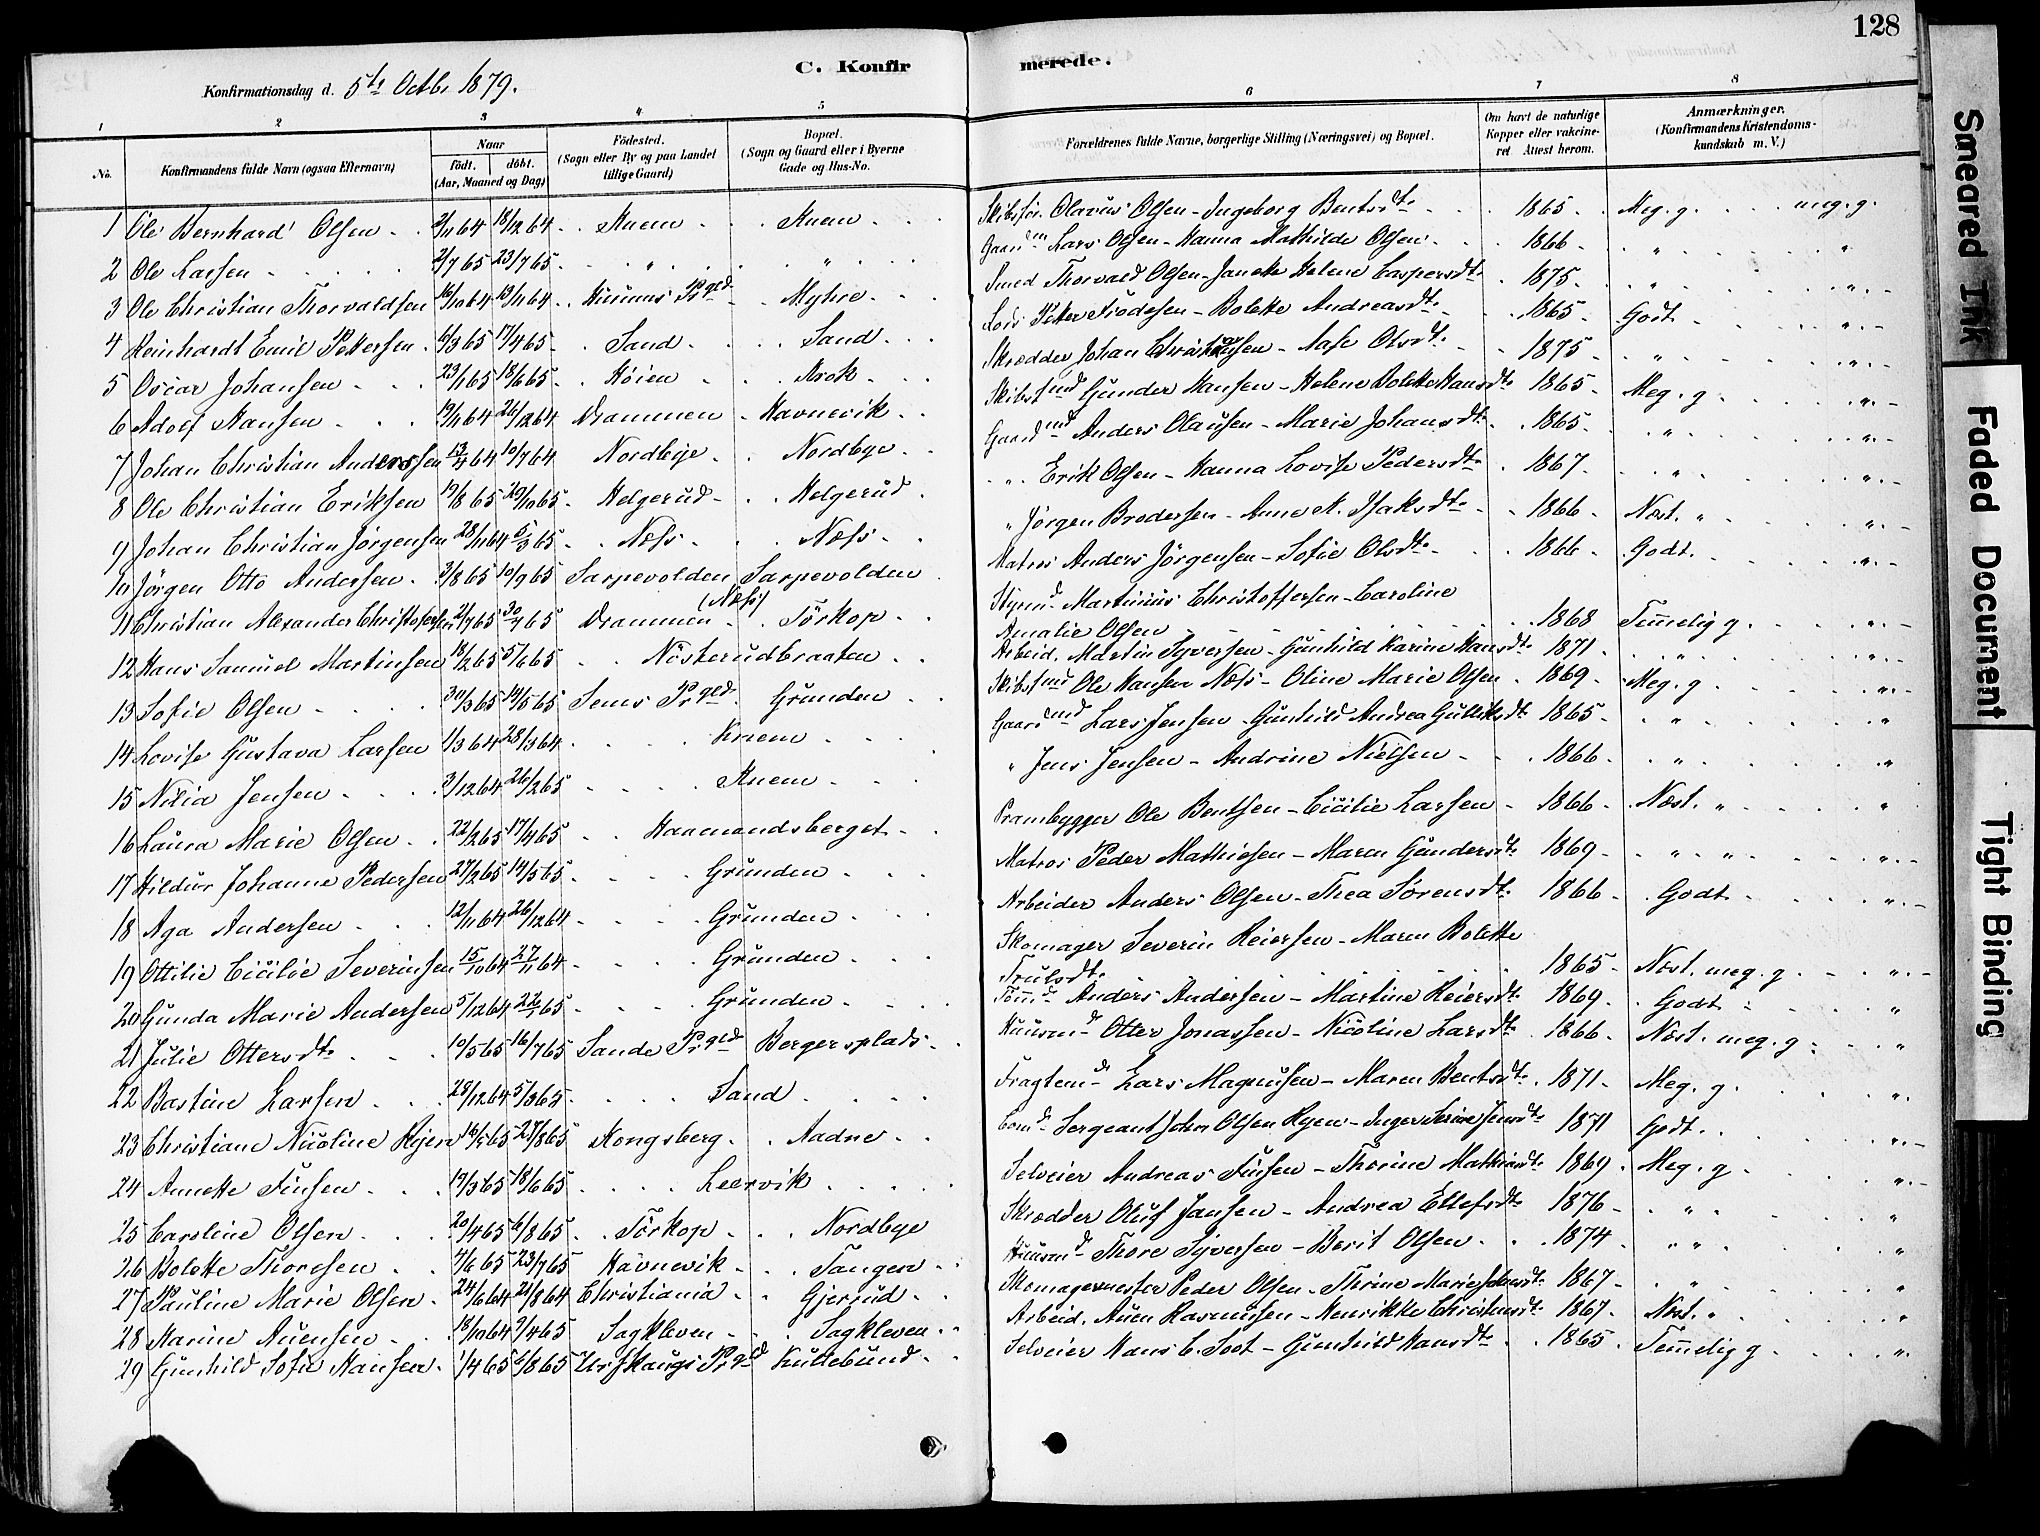 128
C. Konfirmerede.
Konfirmationsdag d. 5te Octbr 1879.
1 2 3 4 5 6 7 8
No. Konfirmandens fulde Navn (ogsaa Efternavn) Naar født. døbt. (Aar, Maaned og Dag) Fødested. (Sogn eller By og paa Landet tillige Gaard) Bopæl. (Sogn og Gaard eller i Byerne Gade og Hus-No. Forældrenes fulde Navne, borgerlige Stilling (Næringsvei) og Bopæl. Om havt de naturlige Kopper eller vakcineret Attest herom. Anmærkninger. (Konfirmandens Kristendomskundskab m. V.)
1 Ole Bernhard Olsen 2/11 64 18/12 64 Knem Knem Skibsför. Olavus Olsen - Ingeborg Bentsdtr 1865 Meg. g. meg. g.
2 Ole Larsen 2/7 65 23/7 65 " " Gaardm Lars Olsen - Hanna Mathilde Olsen 1866 " "
3 Ole Christian Thorvaldsen 16/10 64 13/11 64 Hurums Prgld Myhre Smed Thorvald Olsen - Janette Helene Caspersdtr 1875 " "
4 Reinhardt Emil Pettersen 6/3 65 17/4 65 Sand Sand Lods Petter Frodesen - Bolette Andreasdtr 1865 Godt "
5 Oscar Johansen 23/1 65 18/6 65 Höien Krok Skrædder Johan Christiansen - Aase Olsdtr 1875 " "
6 Adolf Hansen 19/11 64 26/12 64 Drammen Havnevik Skibstmd Gunder Hansen - Helene Bolette Hansdtr 1865 Meg. g "
7 Johan Christian Anderssen 13/4 64 10/7 64 Nordbye Nordbye Gaardmd Anders Olausen - Marie Johansdtr 1865 " "
8 Ole Christian Eriksen 19/8 65 29/10 65 Helgerud Helgerud " Erik Olsen - Hanna Lovise Pedersdtr 1867 " "
9 Johan Christian Jörgensen 28/11 64 5/3 65 Næss Næss " Jörgen Brodersen - Anne A. Isaksdtr 1866 Næst. " "
10 Jörgen Otto Andersen 3/8 65 10/9 65 Sarpevolden Sarpevolden Matros Anders Jörgensen - Sofie Olsdtr 1866 Godt "
11 Christian Alexander Christofersen 21/7 65 30/7 65 Drammen (Næss) Törkop Styrmd Martinius Christoffersen - Caroline
Amalie Olsen 1868 Temmelig g. "
12 Hans Samuel Martinsen 18/2 65 5/6 65 Nösterudbraaten Arbeid. Martin Syversen - Gunhild Karine Hansdtr 1871 " "
13 Sofie Olsen 30/3 65 14/5 65 Sems Prgld. Grunden Skibstmd Ole Hansen Næss - Oline Marie Olsen 1869 Meg. g "
14 Lovise Gustava Larsen 1/3 64 28/3 64 Knem Gaardmd Lars Jensen - Gunhild Andrea Gulliksdtr 1865 " "
15 Nilia Jensen 3/12 64 26/2 65 Knem " Jens Jensen - Andrine Nielsen 1866 " "
16 Laura Marie Olsen 22/2 65 17/4 65 Haamandsberget Prambygger Ole Bentsen - Cicilie Larsen 1866 Næst. " "
17 Hildur Johanne Pedersen 27/2 65 14/5 65 Grunden Matros Peder Mathiesen - Maren Gundersdtr 1869 " " " "
18 Aga Andersen 12/11 64 26/12 64 Grunden Arbeider Anders Olsen - Thea Sörensdtr 1866 Godt "
19 Ottilie Cicilie Severinsen 15/10 64 27/11 64 Grunden Skomager Severin Reiersen - Maren Bolette
Trulsdtr. 1865 Næst. meg. g. "
20 Gunda Marie Andersen 5/12 64 22/1 65 Grunden Tömmd Anders Andersen - Martine Reiersdtr 1869 Godt "
21 Julie Ottersdtr 10/5 65 16/7 65 Sande Prgld Bergersplads Huusmd Otter Jonassen - Nicoline Larsdtr 1866 Næst. meg. g "
22 Bastine Larsen 28/12 64 5/3 65 Sand Fragtemd Lars Magnusen - Maren Bentsdtr. 1871 Meg. g. "
23 Christiane Nicoline Hyen 16/5 65 27/8 65 Kongsberg Aadne Comd Sergeant John Olsen Hyen - Inger Serine Jensdtr 1871 Godt "
24 Annette Finsen 19/3 65 18/6 65 Leervik Selveier Andreas Finsen - Thorine Mathiasdtr 1869 Meg. g "
25 Caroline Olsen 20/4 65 6/8 65 Törkop Nordbye Skrædder Oluf Jansen - Andrea Ellefsdtr 1876 " " "
26 Bolette Thoresen 4/6 65 23/7 65 Havnevik Tangen Huusmd Thore Syversen - Berit Olsen 1874 " " "
27 Pauline Marie Olsen 24/6 64 21/8 64 Christiania Gjerrud Skomagermester Peder Olsen - Thrine Marie Johnsdtr 1867 " "
28 Karine Auensen 18/10 64 9/4 65 Sagkleven Sagkleven Arbeid. Auen Rasmussen - Henrikke Christensdtr 1867 Næst. " "
29 Gunhild Sofie Hansen 1/4 65 6/8 65 Urskaugs Prgld Kullebund Selveier Hans C. Soot - Gunhild Hansdtr 1865 Temmelig g "
Smeared Ink
Faded Document
Tight Binding